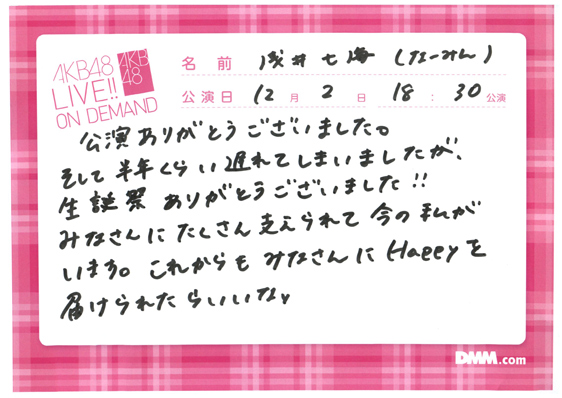 AKB48
LIVE!!
ON DEMAND
AKB
48
名前 浅井七海 (なーみん)
公演日 12月2日 18:30公演
公演ありがとうございました。
そして半年くらい遅れてしまいましたが、
生誕祭ありがとうございました!!
みなさんにたくさん支えられて今の私が
います。これからもみなさんにHappyを
届けられたらいいな。
DMM.com